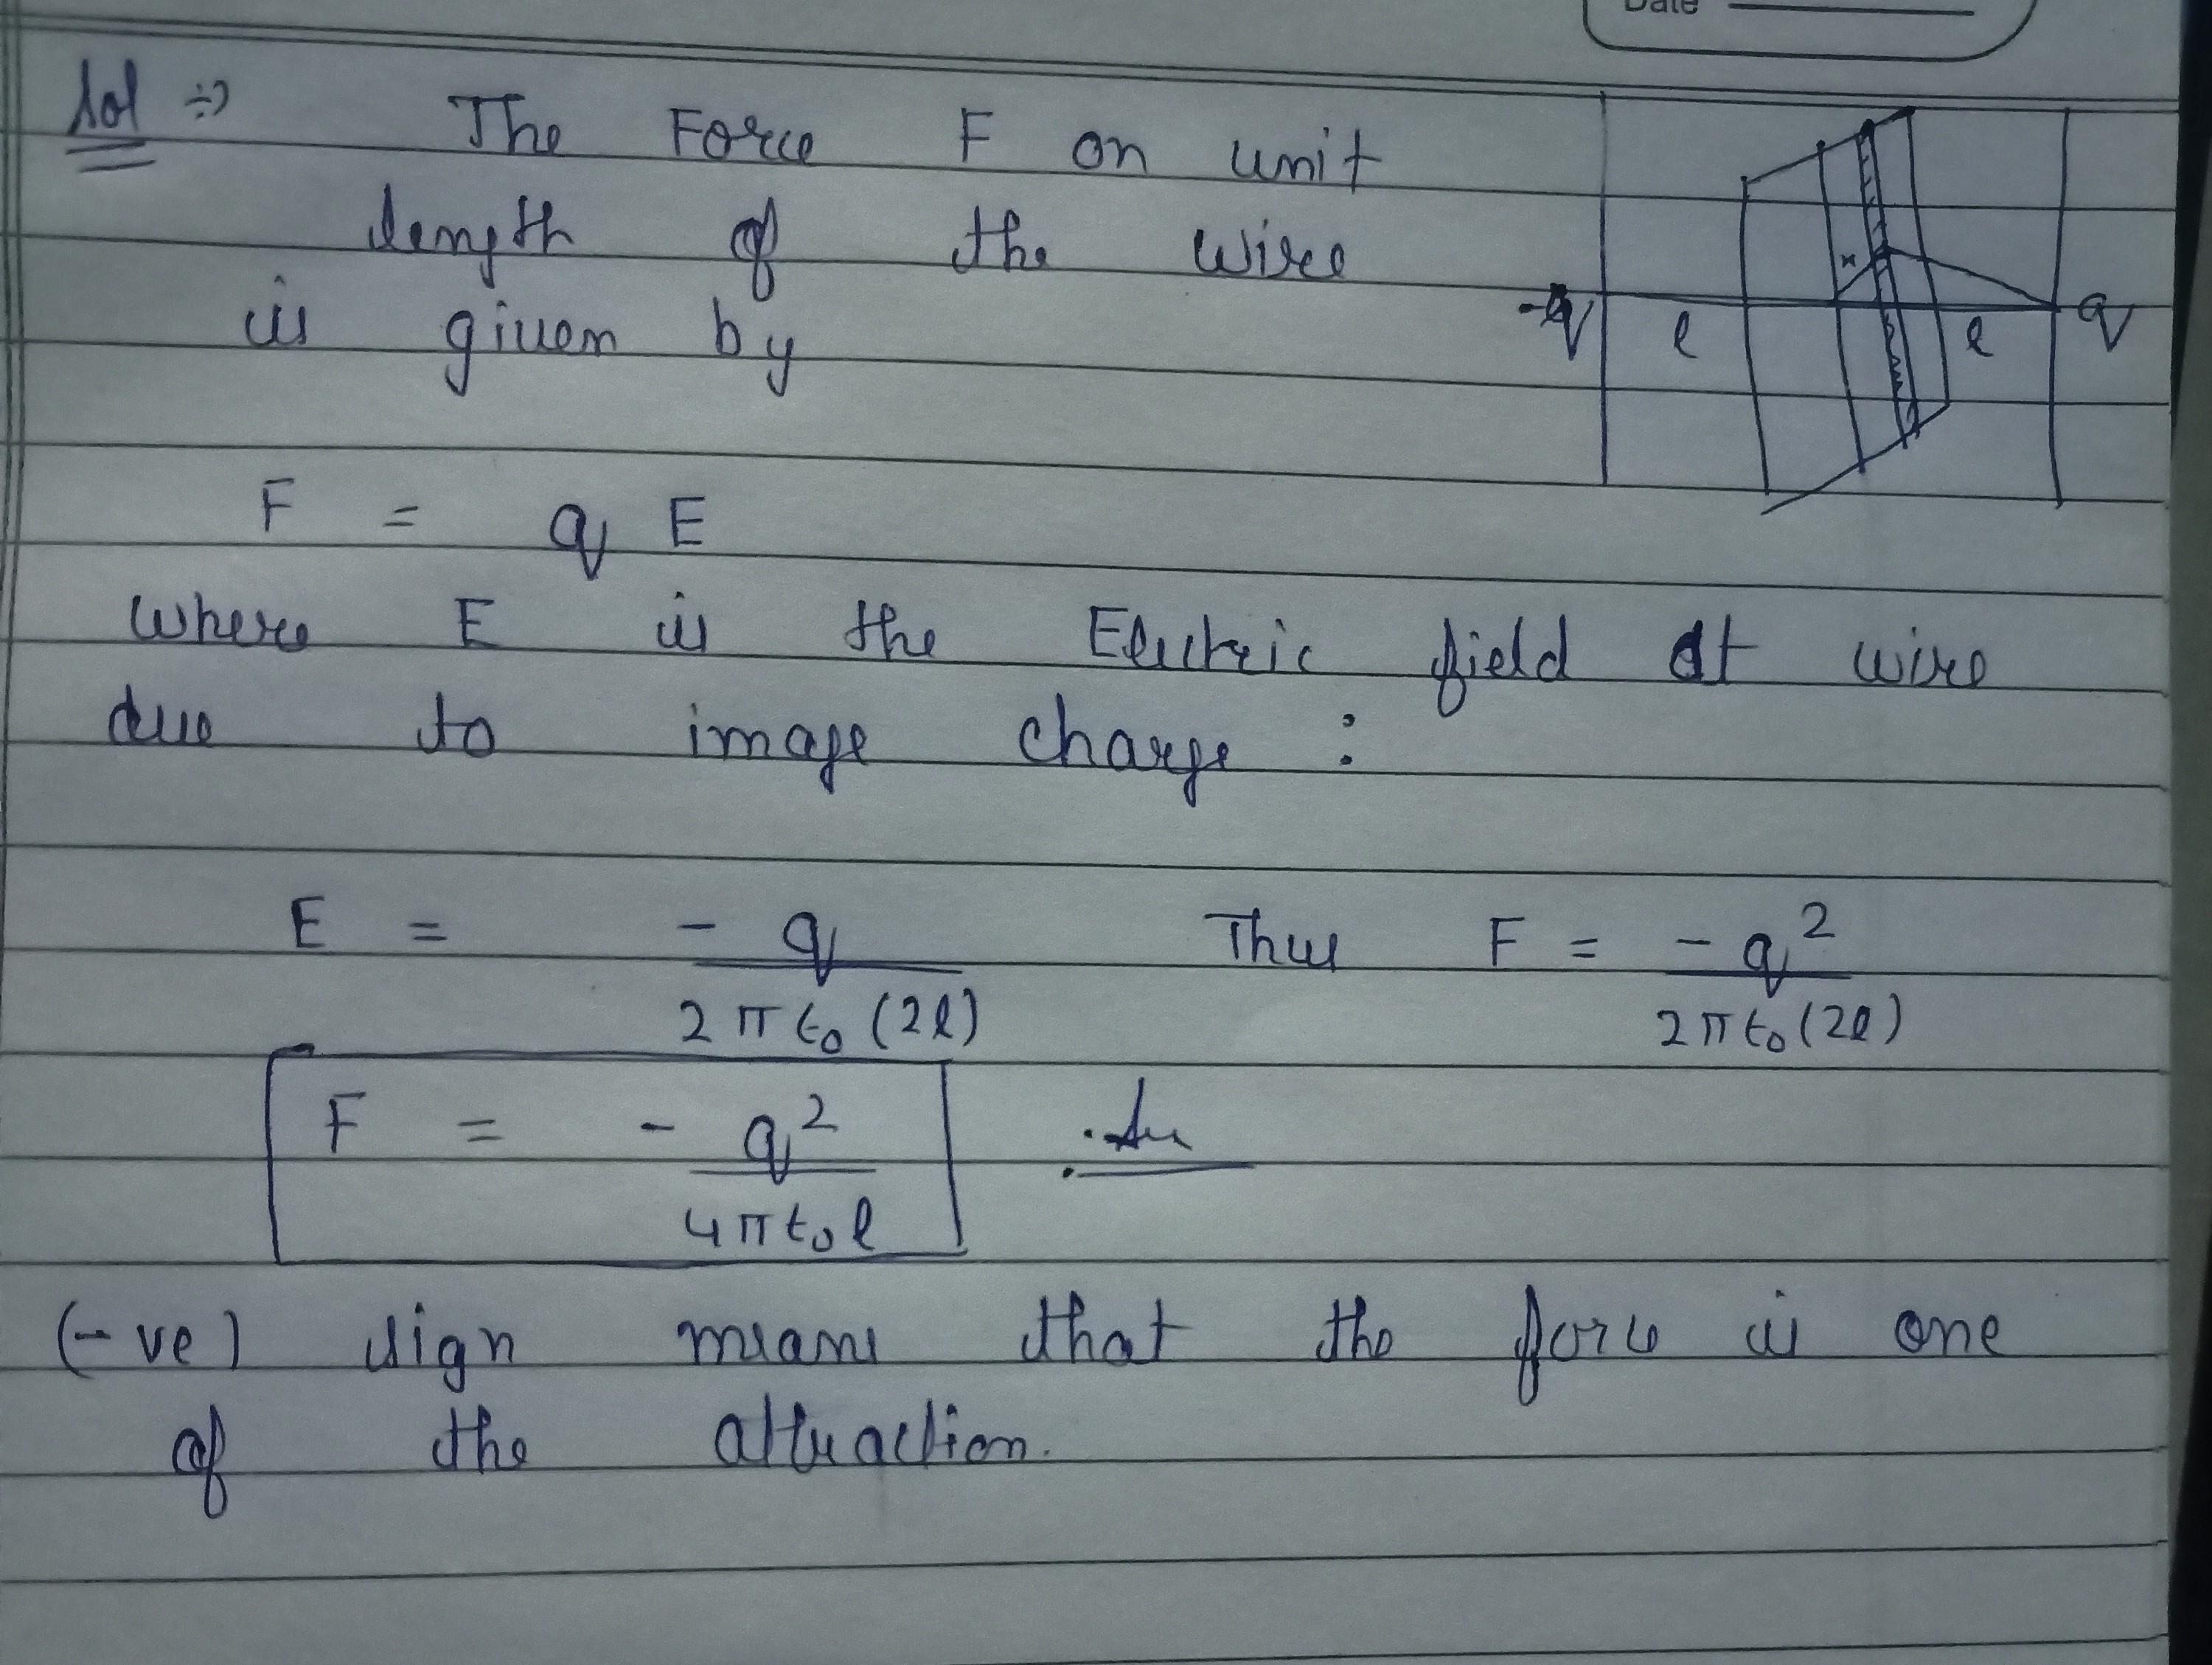 Date
Sol ⇒ The Force F on unit
length of the wire
is given by
-q l x l q
F = q E
where E is the Electric field at wire
due to image charge :
E = - q / 2π ε₀ (2l) Thus F = - q² / 2π ε₀ (2l)
F = - q² / 4π ε₀ l . Ans
(-ve) sign means that the force is one
of the attraction.